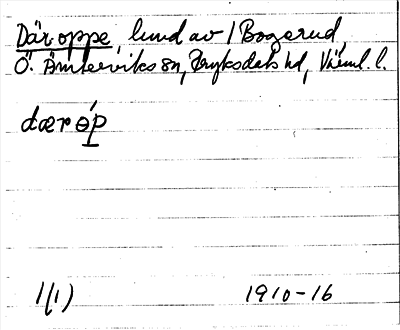 Där oppe, lund av 1 Bogerud,
Ö. Ämterviks sn, Fryksdals hd, Värml. l.
dær ǿp
1(1) 1910-16